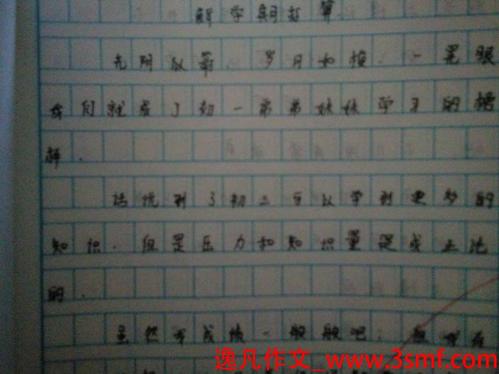 新学期打算
光阴似箭 岁月如梭,一晃眼
我们就成了初一弟弟妹妹学习的榜
样.
话说到了初二可以学到更多的
知识.但是压力和知识量是成正比
的.
虽然我成绩一般般吧,但我在
逸凡作文_www.3smf.com